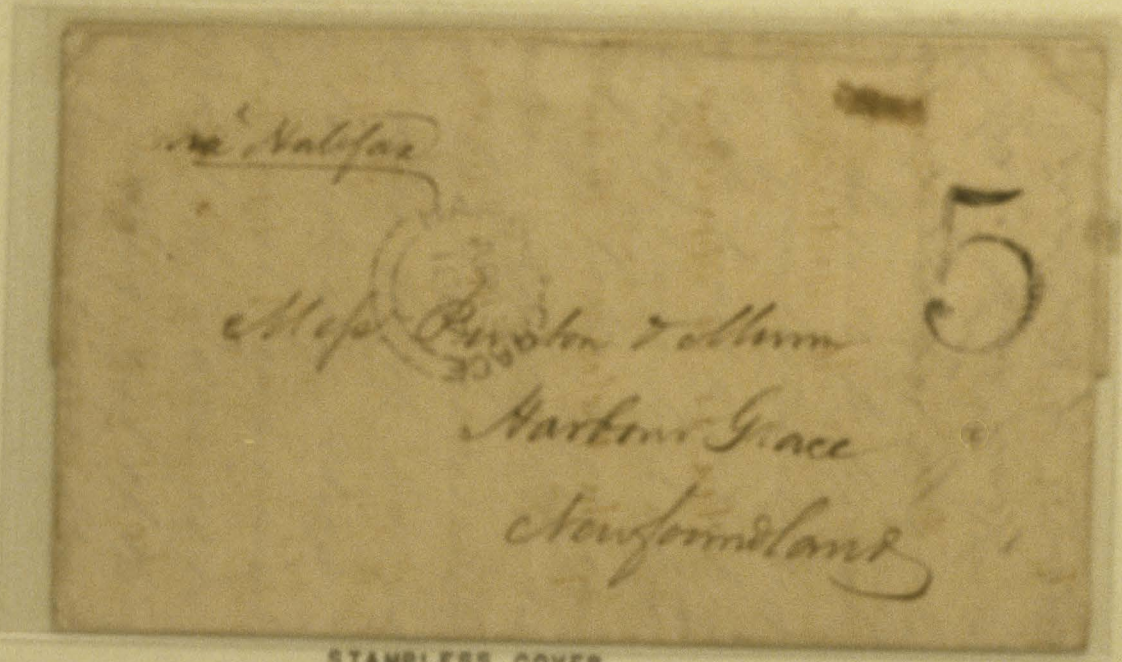 via Halifax
5
Mess Punton & Munn
Harbour Grace
Newfoundland
STAMPLESS COVER